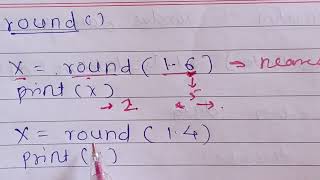 round()
x = round(1.6) → neare
print(x) 5
→ 2
x = round(1.4)
print( )